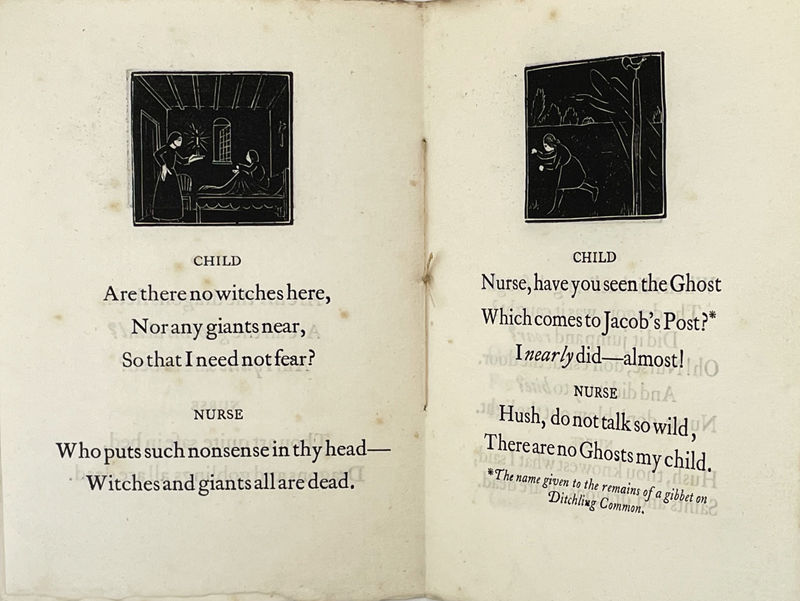 CHILD
Are there no witches here,
Nor any giants near,
So that I need not fear?
NURSE
Who puts such nonsense in thy head—
Witches and giants all are dead.
CHILD
Nurse, have you seen the Ghost
Which comes to Jacob's Post?*
I nearly did—almost!
NURSE
Hush, do not talk so wild,
There are no Ghosts my child.
*The name given to the remains of a gibbet on
Ditchling Common.